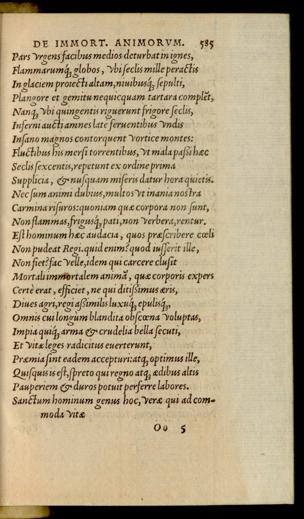 DE IMMORT. ANIMORVM. 585
Pars vrgens facibus medios deturbat in ignes,
Flammarumq́; globos, Vbi seclis mille peractis
In glaciem proiecti altam, niuibusq́; sepulti,
Plangore et gemitu nequicquam tartara complẽt,
Nanq; Vbi quingentis riguerunt frigore seclis,
Inferni aucti amnes late feruentibus Vndis
Insano magnos contorquent Vortice montes:
Fluctibus his mersi torrentibus, Vt mala passi hæc
Seclis sexcentis, repetunt ex ordine prima
Supplicia, & nusquam miseris datur hora quietis.
Nec sum animi dubius, multos Vt inania nostra
Carmina risuros: quoniam quæ corpora non sunt,
Non flammas, frigusq́; pati, non verbera, rentur.
Est hominum hæc audacia, quos præscribere cœli
Non pudeat Regi. quid enim? quod iusserit ille,
Non fiet? fac Velle, idem qui carcere clusit
Mortali immortalem animã, quæ corporis expers
Certè erat, efficiet, ne qui ditißimus æris,
Diues agri, regi aßimilis luxuq́;, epulisq́;,
Omnis cui longum blandita obscœna Voluptas,
Impia quiq́; arma & crudelia bella secuti,
Et Vitæ leges radicitus euerterunt,
Præmia sint eadem accepturi: atq; optimus ille,
Quisquis is est, spreto qui regno atq; ædibus altis
Pauperiem & duros potuit perferre labores.
Sanctum hominum genus hoc, Veræ qui ad com-
moda Vitæ
Oo 5